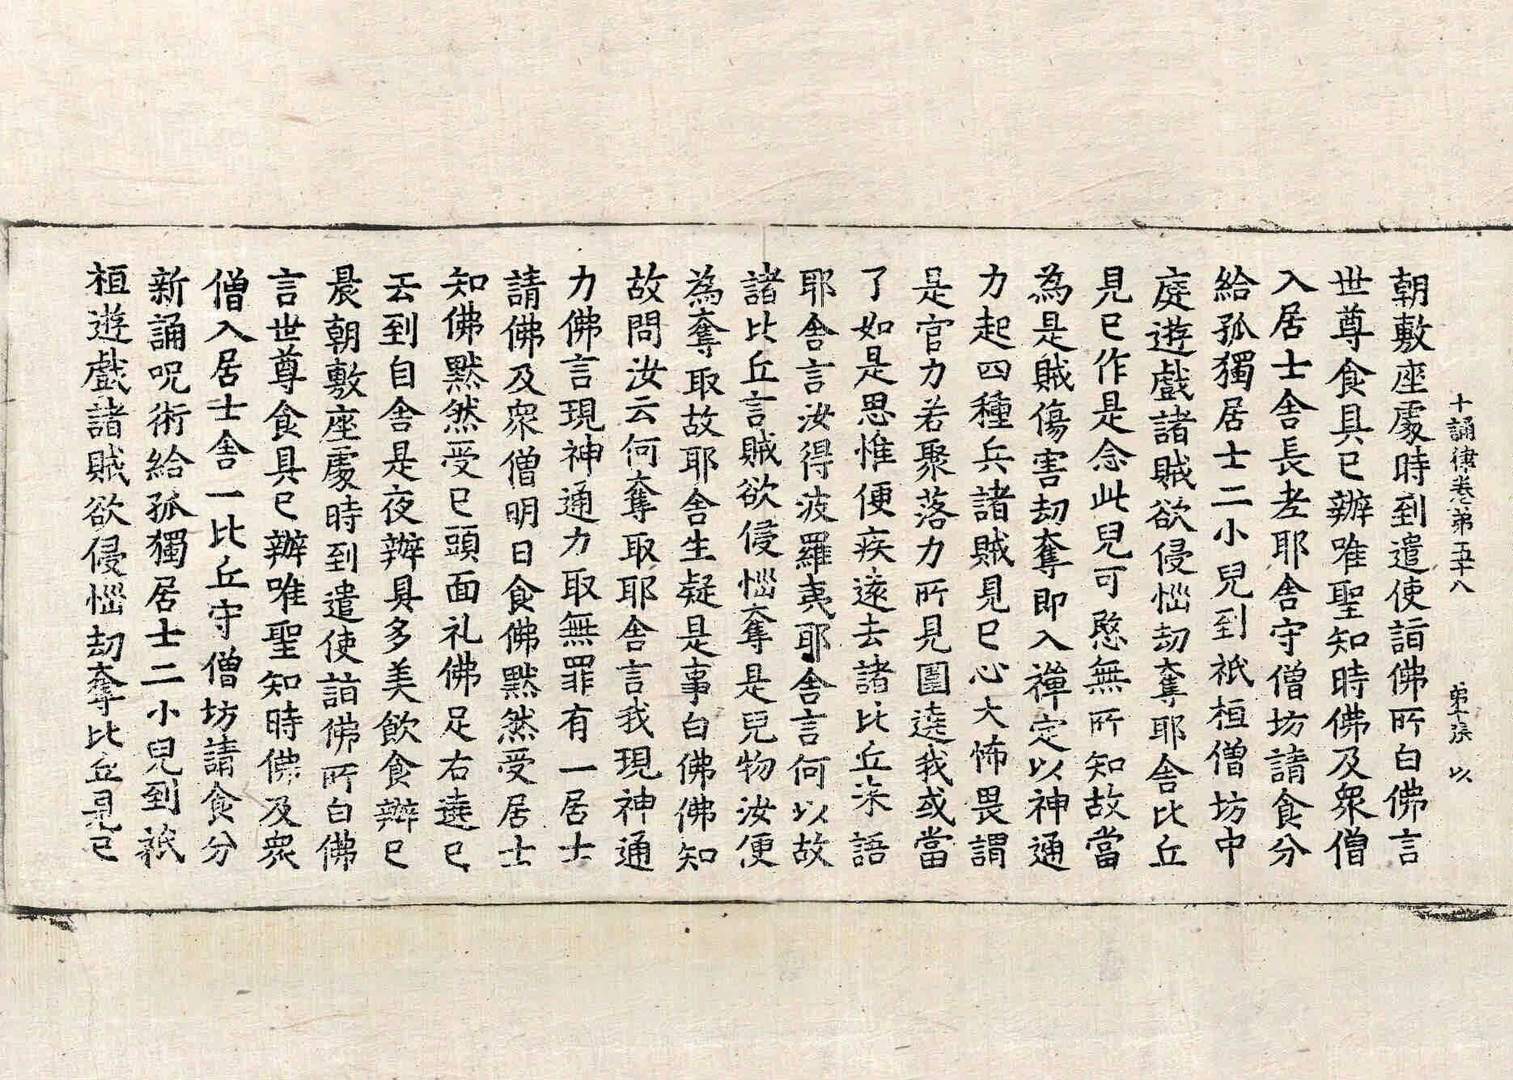 十誦律卷第五十八 第十張 以
朝敷座處時到遣使詣佛所白佛言
世尊食具已辦唯聖知時佛及衆僧
入居士舍長老耶舍守僧坊請食分
給孤獨居士二小兒到祇桓僧坊中
庭遊戲諸賊欲侵惱劫奪耶舍比丘
見已作是念此兒可愍無所知故當
為是賊傷害劫奪即入禪定以神通
力起四種兵諸賊見已心大怖畏謂
是官力若聚落力所見圍遶我或當
了如是思惟便疾遠去諸比丘來語
耶舍言汝得波羅夷耶舍言何以故
諸比丘言賊欲侵惱奪是兒物汝便
為奪取故耶舍生疑是事白佛佛知
故問汝云何奪取耶舍言我現神通
力佛言現神通力取無罪有一居士
請佛及衆僧明日食佛黙然受居士
知佛黙然受已頭面礼佛足右遶已
去到自舍是夜辦具多美飲食辦已
晨朝敷座處時到遣使詣佛所白佛
言世尊食具已辦唯聖知時佛及衆
僧入居士舍一比丘守僧坊請食分
新誦呪術給孤獨居士二小兒到祇
桓遊戲諸賊欲侵惱劫奪比丘見已